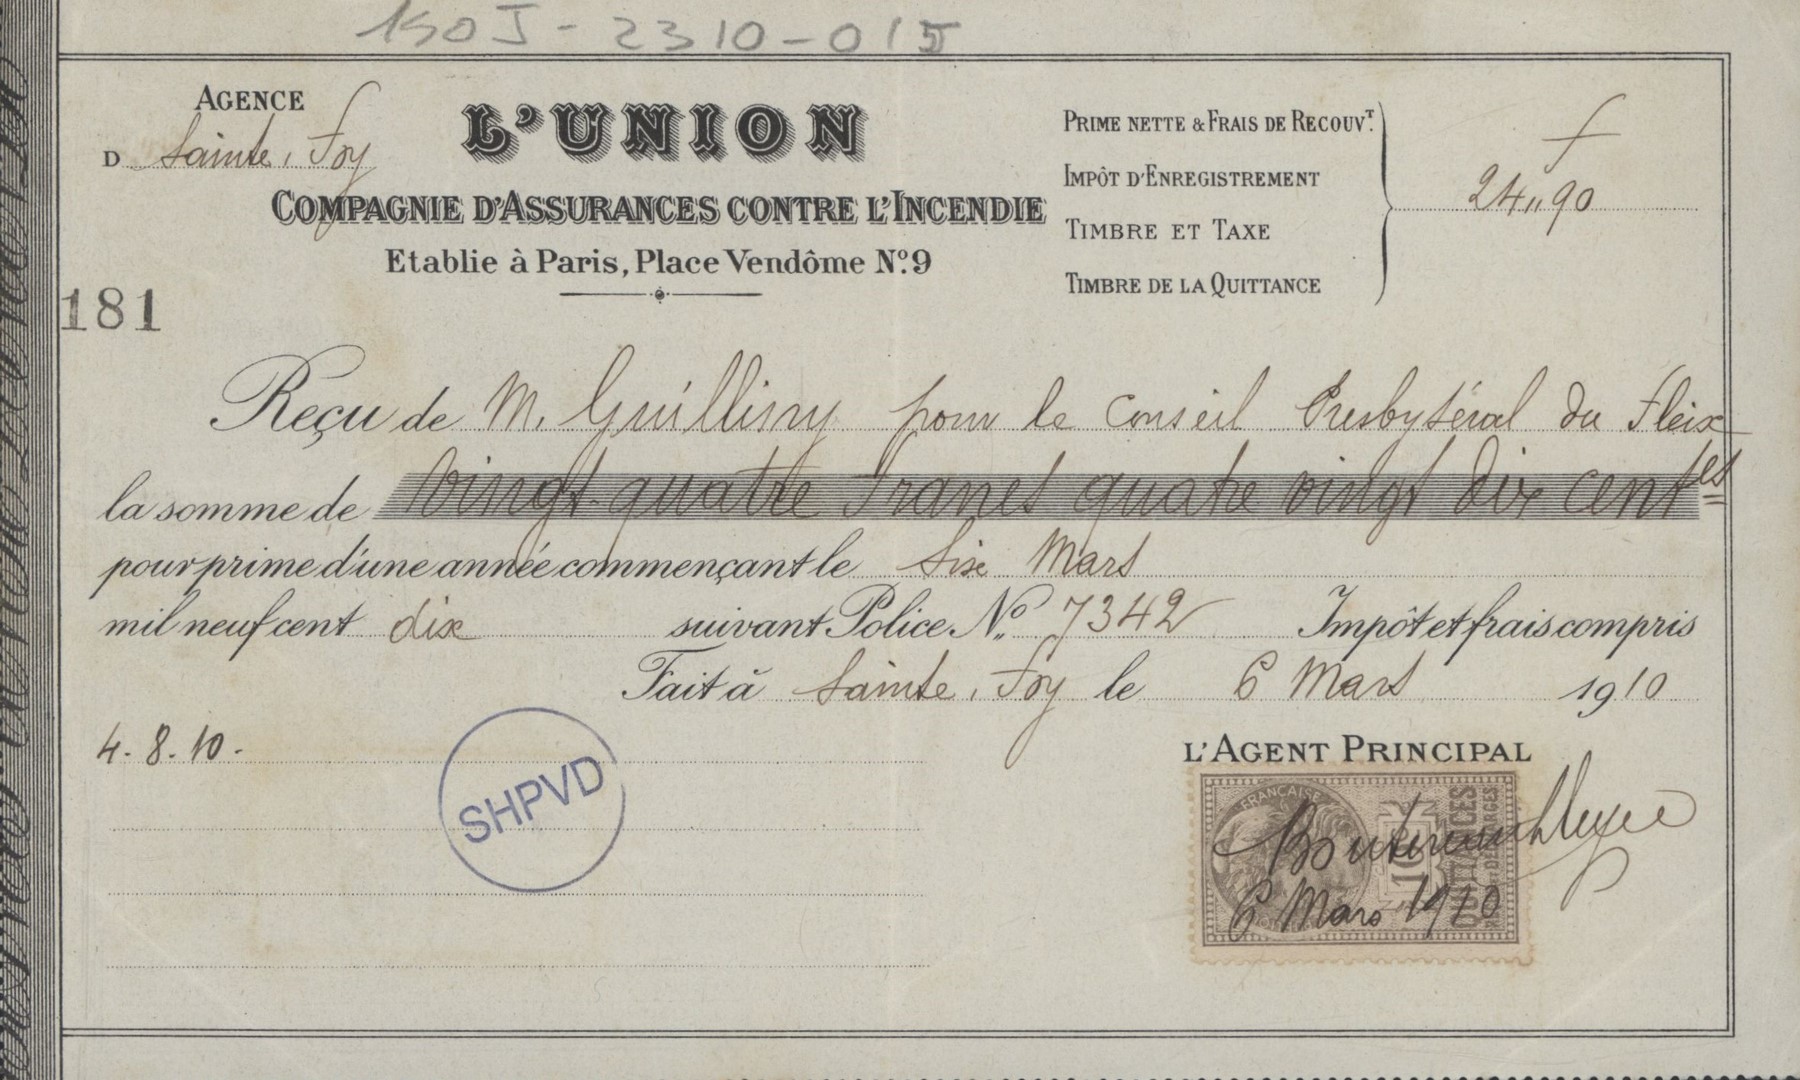 150J-2310-015
AGENCE
D Sainte, Foy
L'UNION
COMPAGNIE D'ASSURANCES CONTRE L'INCENDIE
Etablie à Paris, Place Vendôme Nº. 9
PRIME NETTE & FRAIS DE RECOUVT.
IMPÔT D'ENREGISTREMENT
TIMBRE ET TAXE
TIMBRE DE LA QUITTANCE
f
24,,90
181
Reçu de M. Guilliny pour le Conseil Presbytéral du Fleix
la somme de Vingt quatre francs quatre vingt dix centes
pour prime d'une année commençant le Six Mars
mil neuf cent dix suivant Police Nº. 7342 Impôt et frais compris
Fait à Sainte, Foy le 6 Mars 1910
4.8.10.
SHPVD
L'AGENT PRINCIPAL
FRANÇAISE
10c
QUITTANCES
6 Mars 1910